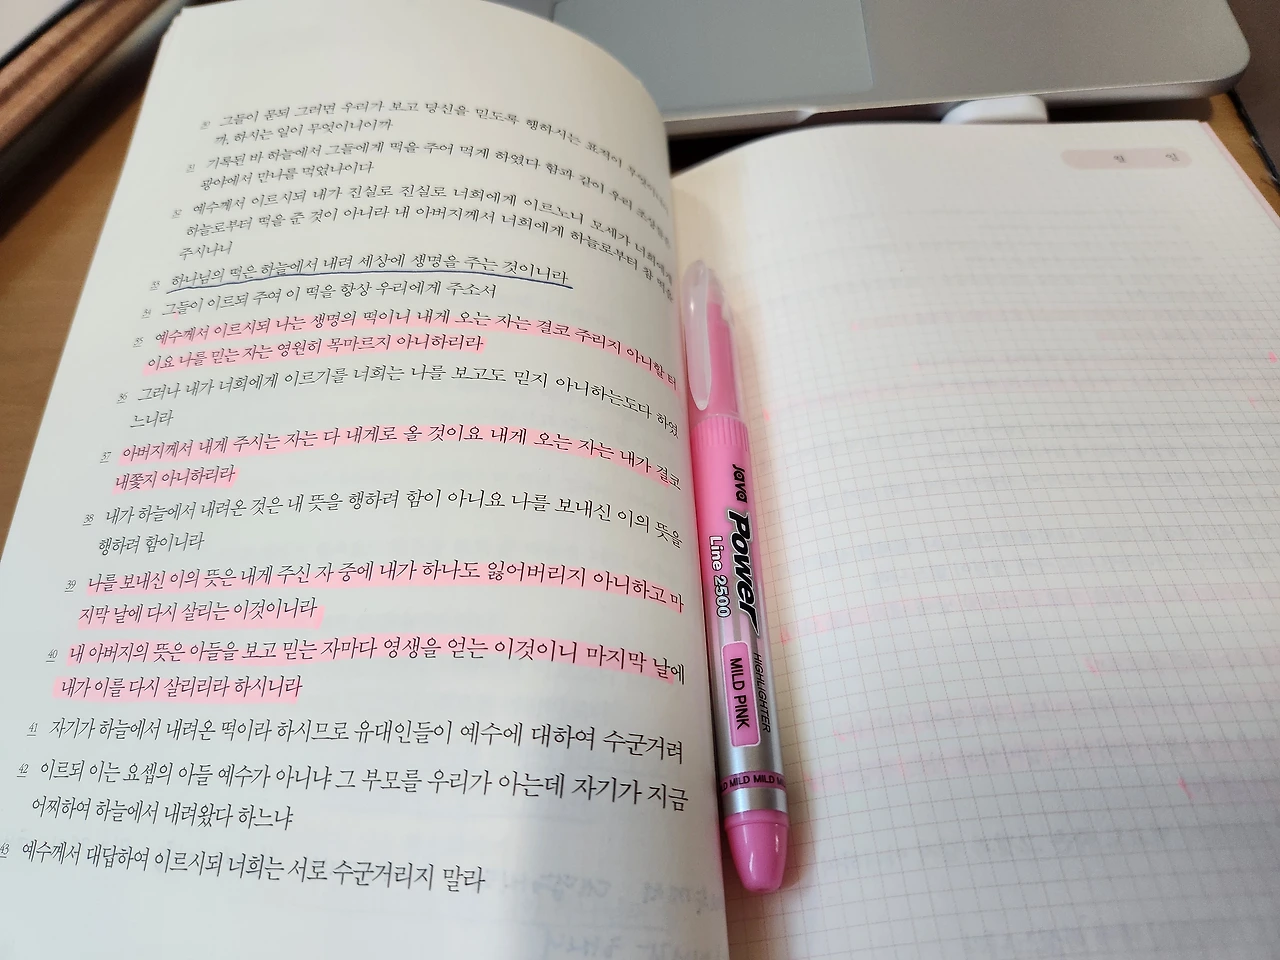 30 그들이 묻되 그러면 우리가 보고 당신을 믿도록 행하시는 표적이 무엇이니이
까, 하시는 일이 무엇이니이까
31 기록된 바 하늘에서 그들에게 떡을 주어 먹게 하였다 함과 같이 우리 조상들은
광야에서 만나를 먹었나이다
32 예수께서 이르시되 내가 진실로 진실로 너희에게 이르노니 모세가 너희에게
하늘로부터 떡을 준 것이 아니라 내 아버지께서 너희에게 하늘로부터 참 떡을
주시나니
33 하나님의 떡은 하늘에서 내려 세상에 생명을 주는 것이니라
34 그들이 이르되 주여 이 떡을 항상 우리에게 주소서
35 예수께서 이르시되 나는 생명의 떡이니 내게 오는 자는 결코 주리지 아니할 터
이요 나를 믿는 자는 영원히 목마르지 아니하리라
36 그러나 내가 너희에게 이르기를 너희는 나를 보고도 믿지 아니하는도다 하였
느니라
37 아버지께서 내게 주시는 자는 다 내게로 올 것이요 내게 오는 자는 내가 결코
내쫓지 아니하리라
38 내가 하늘에서 내려온 것은 내 뜻을 행하려 함이 아니요 나를 보내신 이의 뜻을
행하려 함이니라
39 나를 보내신 이의 뜻은 내게 주신 자 중에 내가 하나도 잃어버리지 아니하고 마
지막 날에 다시 살리는 이것이니라
40 내 아버지의 뜻은 아들을 보고 믿는 자마다 영생을 얻는 이것이니 마지막 날에
내가 이를 다시 살리리라 하시니라
41 자기가 하늘에서 내려온 떡이라 하시므로 유대인들이 예수에 대하여 수군거려
42 이르되 이는 요셉의 아들 예수가 아니냐 그 부모를 우리가 아는데 자기가 지금
어찌하여 하늘에서 내려왔다 하느냐
43 예수께서 대답하여 이르시되 너희는 서로 수군거리지 말라
월 일
Java Power
Line 2500
HIGHLIGHTER
MILD PINK
MILD MILD MILD